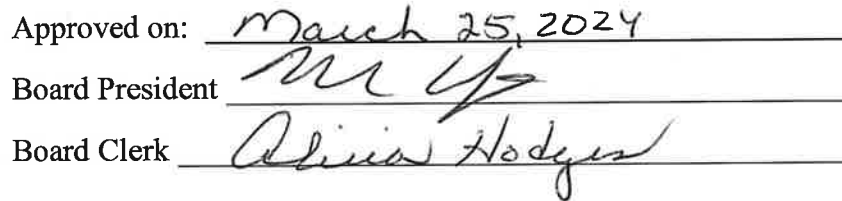 Approved on: March 25, 2024
Board President
Board Clerk Alicia Hodges